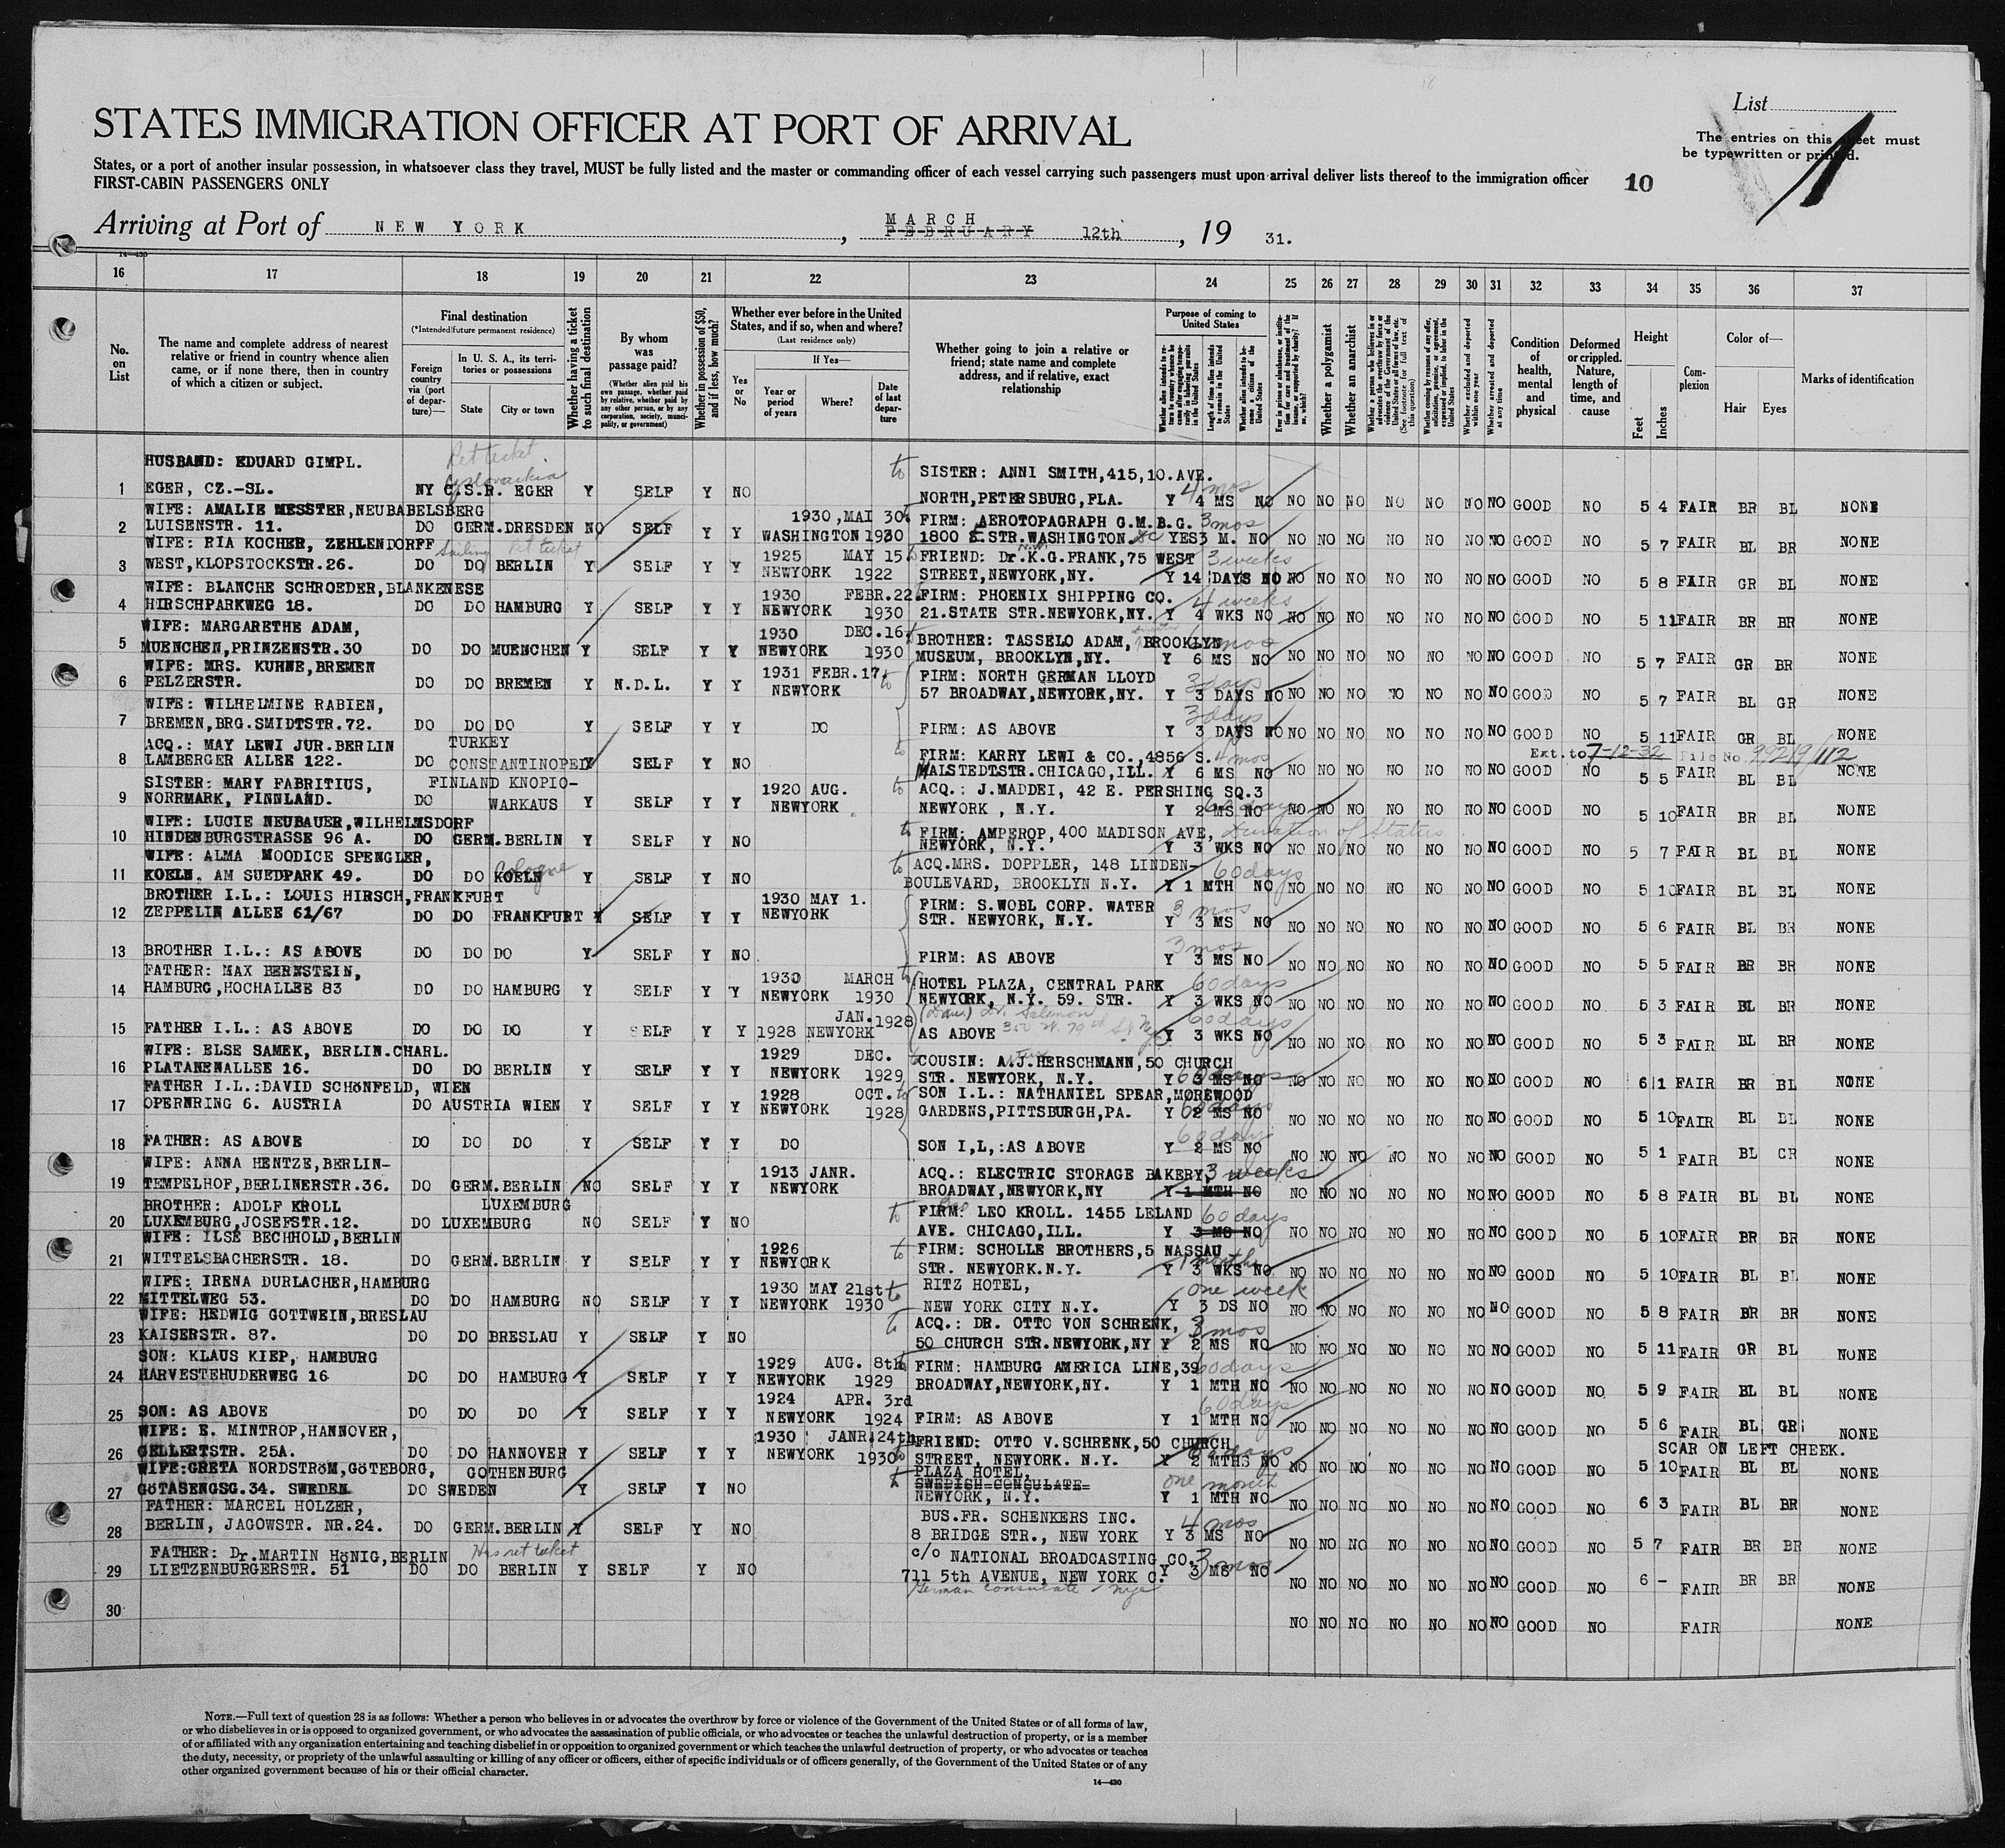 List
The entries on this sheet must
be typewritten or printed.
STATES IMMIGRATION OFFICER AT PORT OF ARRIVAL
States, or a port of another insular possession, in whatsoever class they travel, MUST be fully listed and the master or commanding officer of each vessel carrying such passengers must upon arrival deliver lists thereof to the immigration officer
FIRST-CABIN PASSENGERS ONLY
10
MARCH
Arriving at Port of NEW YORK, FEBRUARY 12th, 19 31.
14-430
16 17 18 19 20 21 22 23 24 25 26 27 28 29 30 31 32 33 34 35 36 37
No. on List
The name and complete address of nearest relative or friend in country whence alien came, or if none there, then in country of which a citizen or subject.
Final destination
(*Intended future permanent residence)
Foreign country via (port of departure)—
In U. S. A., its territories or possessions
State
City or town
Whether having a ticket to such final destination
By whom was passage paid?
(Whether alien paid his own passage, whether paid by relative, whether paid by any other person, or by any corporation, society, municipality, or government)
Whether in possession of $50, and if less, how much?
Whether ever before in the United States, and if so, when and where?
(Last residence only)
Yes or No
If Yes—
Year or period of years
Where?
Date of last departure
Whether going to join a relative or friend; state name and complete address, and if relative, exact relationship
Purpose of coming to United States
Length of time alien intends to remain in the United States
Whether alien intends to become a citizen of the United States
Whether a polygamist
Whether an anarchist
Whether excluded and deported within one year
Whether arrested and deported at any time
Condition of health, mental and physical
Deformed or crippled. Nature, length of time, and cause
Height
Feet
Inches
Complexion
Color of—
Hair
Eyes
Marks of identification
Ret ticket
HUSBAND: EDUARD GIMPL. to SISTER: ANNI SMITH,415,10.AVE. 4 mos
1 EGER, CZ.-SL. NY C.S.R. EGER Y SELF Y NO NORTH,PETERSBURG,FLA. Y 4 MS NO NO NO NO NO NO NO NO GOOD NO 5 4 FAIR BR BL NONE
WIFE: AMALIE MESSTER,NEUBABELSBERG 1930,MAI 30. FIRM: AEROTOPAGRAPH G.M.B.G. 3 mos
2 LUISENSTR. 11. DO GERM.DRESDEN NO SELF Y Y WASHINGTON 1930 1800 E.STR.WASHINGTON. DC YES3 M. NO NO NO NO NO NO NO NO GOOD NO 5 7 FAIR BL BR NONE
WIFE: RIA KOCHER, ZEHLENDORFF Sailing Ret ticket 1925 MAY 15. FRIEND: Dr.K.G.FRANK,75 WEST 3 weeks
3 WEST,KLOPSTOCKSTR.26. DO DO BERLIN Y SELF Y Y NEWYORK 1922 STREET,NEWYORK,NY. Y 14 DAYS NO NO NO NO NO NO NO NO GOOD NO 5 8 FAIR GR BL NONE
WIFE: BLANCHE SCHROEDER,BLANKENESE 1930 FEBR.22. FIRM: PHOENIX SHIPPING CO. 4 weeks
4 HIRSCHPARKWEG 18. DO DO HAMBURG Y SELF Y Y NEWYORK 1930 21.STATE STR.NEWYORK,NY. Y 4 WKS NO NO NO NO NO NO NO NO GOOD NO 5 11 FAIR BR BR NONE
WIFE: MARGARETHE ADAM, 1930 DEC.16. BROTHER: TASSELO ADAM, BROOKLYN
5 MUENCHEN,PRINZENSTR.30 DO DO MUENCHEN Y SELF Y Y NEWYORK 1930 MUSEUM, BROOKLYN,NY. Y 6 MS NO NO NO NO NO NO NO NO GOOD NO 5 7 FAIR GR BR NONE
WIFE: MRS. KUHNE,BREMEN 1931 FEBR.17. to FIRM: NORTH GERMAN LLOYD 3 days
6 PELZERSTR. DO DO BREMEN Y N.D.L. Y Y NEWYORK 57 BROADWAY,NEWYORK,NY. Y 3 DAYS NO NO NO NO NO NO NO NO GOOD NO 5 7 FAIR BL GR NONE
WIFE: WILHELMINE RABIEN, 3 days
7 BREMEN,BRG.SMIDTSTR.72. DO DO DO Y SELF Y Y DO FIRM: AS ABOVE Y 3 DAYS NO NO NO NO NO NO NO NO GOOD NO 5 11 FAIR GR BL NONE
ACQ.: MAY LEWI JUR.BERLIN TURKEY to FIRM: KARRY LEWI & CO.,4856 S. 4 mos Ext. to 7-12-32 File No. 99219/112
8 LAMBERGER ALLEE 122. DO CONSTANTINOPEL Y SELF Y NO HALSTEDTSTR.CHICAGO,ILL. Y 6 MS NO NO NO NO NO NO NO NO GOOD NO 5 5 FAIR BL BL NONE
SISTER: MARY FABRITIUS, FINLAND KNOPIO- 1920 AUG. to ACQ.: J.MADDEI, 42 E. PERSHING SQ.3
9 NORRMARK, FINNLAND. DO WARKAUS Y SELF Y Y NEWYORK NEWYORK , N.Y. 60 days Y 2 MS NO NO NO NO NO NO NO NO GOOD NO 5 10 FAIR BR BL NONE
WIFE: LUCIE NEUBAUER,WILHELMSDORF to FIRM: AMPEROP,400 MADISON AVE, Duration of Status
10 HINDENBURGSTRASSE 96 A. DO GERM.BERLIN Y SELF Y NO NEWYORK, N.Y. Y 3 WKS NO NO NO NO NO NO NO NO GOOD NO 5 7 FAIR BL BL NONE
WIFE: ALMA MOODICE SPENGLER, Cologne to ACQ.MRS. DOPPLER, 148 LINDEN- 60 days
11 KOELN. AM SUEDPARK 49. DO DO KOELN Y SELF Y NO BOULEVARD, BROOKLYN N.Y. Y 1 MTH NO NO NO NO NO NO NO NO GOOD NO 5 10 FAIR BL BL NONE
BROTHER I.L.: LOUIS HIRSCH,FRANKFURT 1930 MAY 1. FIRM: S.WOBL CORP. WATER 3 mos
12 ZEPPELIN ALLEE 61/67 DO DO FRANKFURT Y SELF Y Y NEWYORK STR. NEWYORK, N.Y. Y 3 MS NO NO NO NO NO NO NO NO GOOD NO 5 6 FAIR BL BR NONE
3 mos
13 BROTHER I.L.: AS ABOVE DO DO DO Y SELF Y NO FIRM: AS ABOVE Y 3 MS NO NO NO NO NO NO NO NO GOOD NO 5 5 FAIR BR BR NONE
FATHER: MAX BERNSTEIN, 1930 MARCH to HOTEL PLAZA, CENTRAL PARK 60 days
14 HAMBURG,HOCHALLEE 83 DO DO HAMBURG Y SELF Y Y NEWYORK 1930 NEWYORK, N.Y. 59. STR. Y 3 WKS NO NO NO NO NO NO NO NO GOOD NO 5 3 FAIR BL BR NONE
JAN. 1928 60 days
15 FATHER I.L.: AS ABOVE DO DO DO Y SELF Y Y 1928 NEWYORK AS ABOVE Y 3 WKS NO NO NO NO NO NO NO NO GOOD NO 5 3 FAIR BL BR NONE
WIFE: ELSE SAMEK, BERLIN.CHARL. 1929 DEC. to COUSIN: A.J.HERSCHMANN,50 CHURCH
16 PLATANENALLEE 16. DO DO BERLIN Y SELF Y Y NEWYORK 1929 STR. NEWYORK, N.Y. 60 days Y 3 MS NO NO NO NO NO NO NO NO GOOD NO 6 1 FAIR BR BL NONE
FATHER I.L.:DAVID SCHöNFELD, WIEN 1928 OCT. to SON I.L.: NATHANIEL SPEAR,MOREWOOD
17 OPERNRING 6. AUSTRIA DO AUSTRIA WIEN Y SELF Y Y NEWYORK 1928 GARDENS,PITTSBURGH,PA. 60 days Y 2 MS NO NO NO NO NO NO NO NO GOOD NO 5 10 FAIR BL BL NONE
60 days
18 FATHER: AS ABOVE DO DO DO Y SELF Y Y DO SON I,L,:AS ABOVE Y 2 MS NO NO NO NO NO NO NO NO GOOD NO 5 1 FAIR BL GR NONE
WIFE: ANNA HENTZE,BERLIN- 1913 JANR. ACQ.: ELECTRIC STORAGE BAKERY, 3 weeks
19 TEMPELHOF,BERLINERSTR.36. DO GERM.BERLIN NO SELF Y Y NEWYORK BROADWAY,NEWYORK,NY Y 1 MTH NO NO NO NO NO NO NO NO GOOD NO 5 8 FAIR BL BL NONE
BROTHER: ADOLF KROLL LUXEMBURG to FIRM: LEO KROLL. 1455 LELAND 60 days
20 LUXEMBURG,JOSEFSTR.12. DO LUXEMBURG NO SELF Y NO AVE. CHICAGO,ILL. Y 3 MS NO NO NO NO NO NO NO NO GOOD NO 5 10 FAIR BR BR NONE
WIFE: ILSE BECHHOLD,BERLIN 1926 to FIRM: SCHOLLE BROTHERS,5 NASSAU
21 WITTELSBACHERSTR. 18. DO GERM.BERLIN Y SELF Y Y NEWYORK STR. NEWYORK.N.Y. Y 3 WKS NO NO NO NO NO NO NO NO GOOD NO 5 10 FAIR BL BL NONE
WIFE: IRENA DURLACHER,HAMBURG 1930 MAY 21st to RITZ HOTEL, one week
22 MITTELWEG 53. DO DO HAMBURG NO SELF Y Y NEWYORK 1930 NEW YORK CITY N.Y. Y 3 DS NO NO NO NO NO NO NO NO GOOD NO 5 8 FAIR BR BR NONE
WIFE: HEDWIG GOTTWEIN,BRESLAU to ACQ.: DR. OTTO VON SCHRENK, 3 mos
23 KAISERSTR. 87. DO DO BRESLAU Y SELF Y NO 50 CHURCH STR.NEWYORK,NY Y 2 MS NO NO NO NO NO NO NO NO GOOD NO 5 11 FAIR GR BL NONE
SON: KLAUS KIEP, HAMBURG 1929 AUG. 8th to FIRM: HAMBURG AMERICA LINE,39 60 days
24 HARVESTEHUDERWEG 16 DO DO HAMBURG Y SELF Y Y NEWYORK 1929 BROADWAY,NEWYORK,NY. Y 1 MTH NO NO NO NO NO NO NO NO GOOD NO 5 9 FAIR BL BL NONE
1924 APR. 3rd 60 days
25 SON: AS ABOVE DO DO DO Y SELF Y Y NEWYORK 1924 FIRM: AS ABOVE Y 1 MTH NO NO NO NO NO NO NO NO GOOD NO 5 6 FAIR BL GR NONE
WIFE: E. MINTROP,HANNOVER, 1930 JANR.24th FRIEND: OTTO V.SCHRENK,50 CHURCH SCAR ON LEFT CHEEK.
26 GELLERTSTR. 25A. DO DO HANNOVER Y SELF Y Y NEWYORK 1930 to STREET, NEWYORK. N.Y. 60 days Y 2 MTHS NO NO NO NO NO NO NO NO GOOD NO 5 10 FAIR BL BL NONE
WIFE:GRETA NORDSTRöM,GöTEBORG, GOTHENBURG PLAZA HOTEL, one month
SWEDISH CONSULATE
27 GöTASENGSG.34. SWEDEN DO SWEDEN Y SELF Y NO NEWYORK, N.Y. Y 1 MTH NO NO NO NO NO NO NO NO GOOD NO 6 3 FAIR BL BR NONE
FATHER: MARCEL HOLZER, BUS.FR. SCHENKERS INC. 4 mos
28 BERLIN, JAGOWSTR. NR.24. DO GERM.BERLIN Y SELF Y NO 8 BRIDGE STR., NEW YORK Y 3 MS NO NO NO NO NO NO NO NO GOOD NO 5 7 FAIR BR BR NONE
FATHER: Dr.MARTIN HöNIG,BERLIN Has ret ticket c/o NATIONAL BROADCASTING CO. 3 mos
29 LIETZENBURGERSTR. 51 DO DO BERLIN Y SELF Y NO 711 5th AVENUE, NEW YORK C. Y 3 MS NO NO NO NO NO NO NO NO GOOD NO 6 - FAIR BR BR NONE
German Consulate Nyc
30 NO NO NO NO NO NO NO GOOD NO FAIR NONE
NOTE.—Full text of question 28 is as follows: Whether a person who believes in or advocates the overthrow by force or violence of the Government of the United States or of all forms of law,
or who disbelieves in or is opposed to organized government, or who advocates the assassination of public officials, or who advocates or teaches the unlawful destruction of property, or is a member
of or affiliated with any organization entertaining and teaching disbelief in or opposition to organized government or which teaches the unlawful destruction of property, or who advocates or teaches
the duty, necessity, or propriety of the unlawful assaulting or killing of any officer or officers, either of specific individuals or of officers generally, of the Government of the United States or of any
other organized government because of his or their official character.
14—430